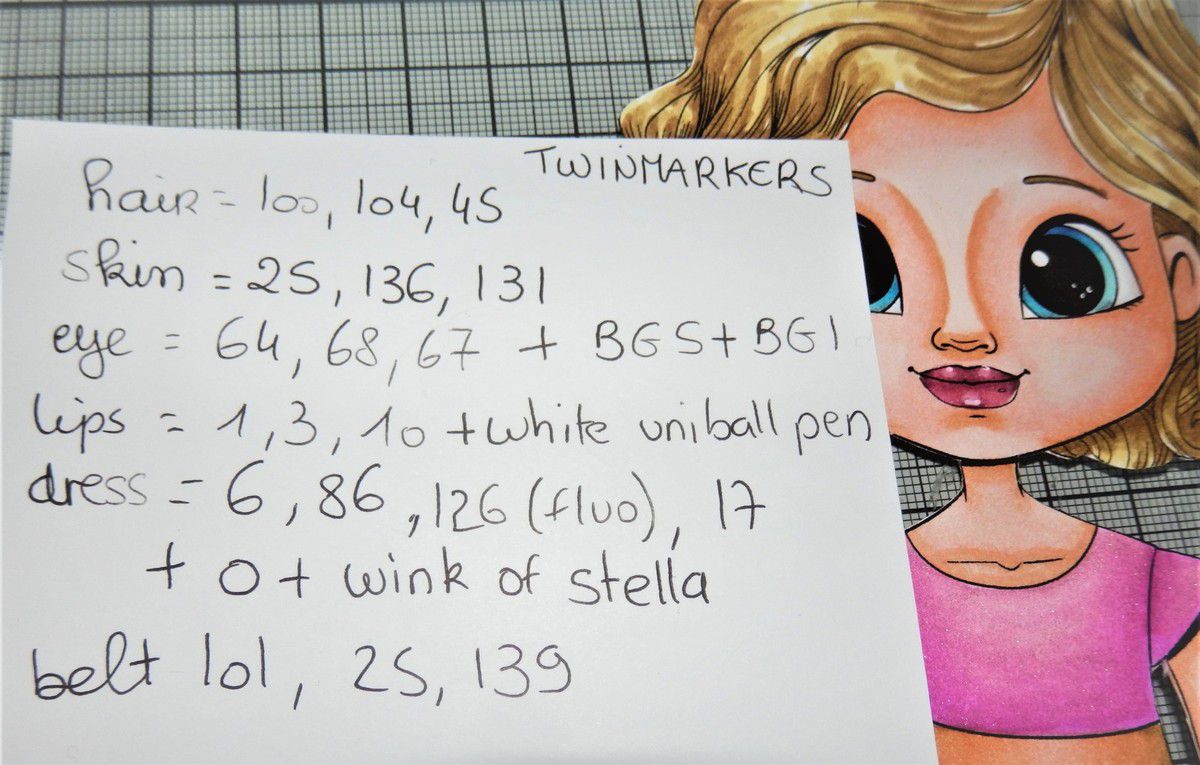 TWINMARKERS
hair = 100, 104, 45
skin = 25, 136, 131
eye = 64, 68, 67 + BG5 + BG1
lips = 1, 3, 10 + white uniball pen
dress = 6, 86, 126 (fluo), 17
+ 0 + wink of stella
belt 101, 25, 139